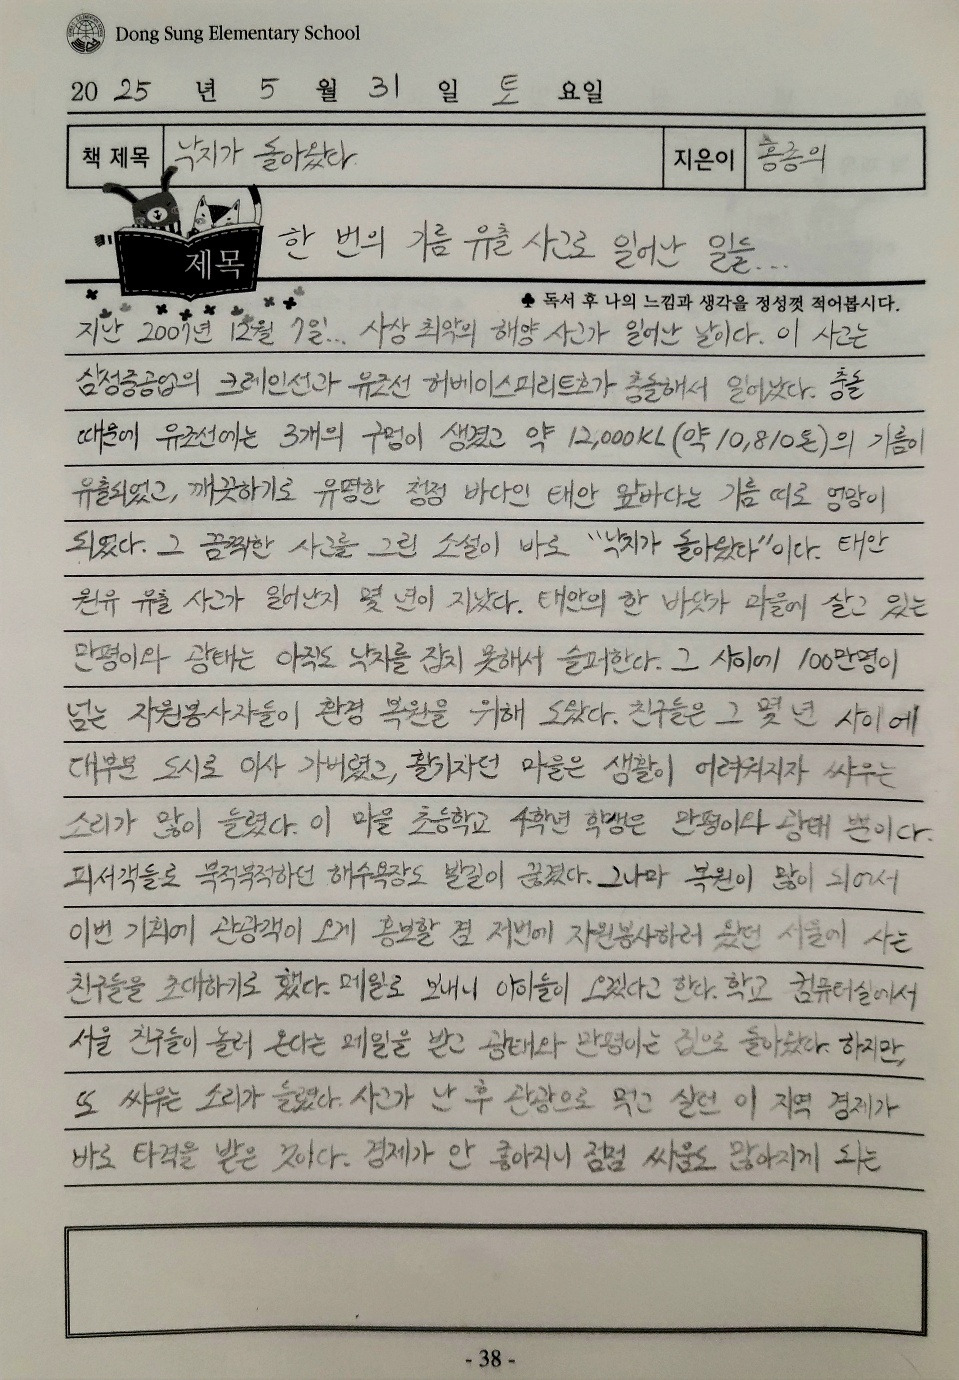 Dong Sung Elementary School
20 25 년 5 월 31 일 토 요일
책 제목 낙지가 돌아왔다. 지은이 홍종의
제목 한 번의 기름 유출 사고로 일어난 일들...
♣ 독서 후 나의 느낌과 생각을 정성껏 적어봅시다.
지난 2007년 12월 7일... 사상 최악의 해양 사고가 일어난 날이다. 이 사고는
삼성중공업의 크레인선과 유조선 허베이스피리트호가 충돌해서 일어났다. 충돌
때문에 유조선에는 3개의 구멍이 생겼고 약 12,000KL(약 10,810톤)의 기름이
유출되었고, 깨끗하기로 유명한 청정 바다인 태안 앞바다는 기름 띠로 엉망이
되었다. 그 끔찍한 사고를 그린 소설이 바로 "낙지가 돌아왔다"이다. 태안
원유 유출 사고가 일어난지 몇 년이 지났다. 태안의 한 바닷가 마을에 살고 있는
만평이와 광태는 아직도 낙지를 잡지 못해서 슬퍼한다. 그 사이에 100만명이
넘는 자원봉사자들이 환경 복원을 위해 도왔다. 친구들은 그 몇 년 사이에
대부분 도시로 이사 가버렸고, 활기차던 마을은 생활이 어려워지자 싸우는
소리가 많이 들렸다. 이 마을 초등학교 4학년 학생은 만평이와 광태 뿐이다.
피서객들로 북적북적하던 해수욕장도 발길이 끊겼다. 그나마 복원이 많이 되어서
이번 기회에 관광객이 오게 홍보할 겸 저번에 자원봉사하러 왔던 서울에 사는
친구들을 초대하기로 했다. 메일로 보내니 아이들이 오겠다고 한다. 학교 컴퓨터실에서
서울 친구들이 놀러 온다는 메일을 받고 광태와 만평이는 집으로 돌아왔다. 하지만,
또 싸우는 소리가 들렸다. 사고가 난 후 관광으로 먹고 살던 이 지역 경제가
바로 타격을 받은 것이다. 경제가 안 좋아지니 점점 싸움도 많아지게 되는
- 38 -